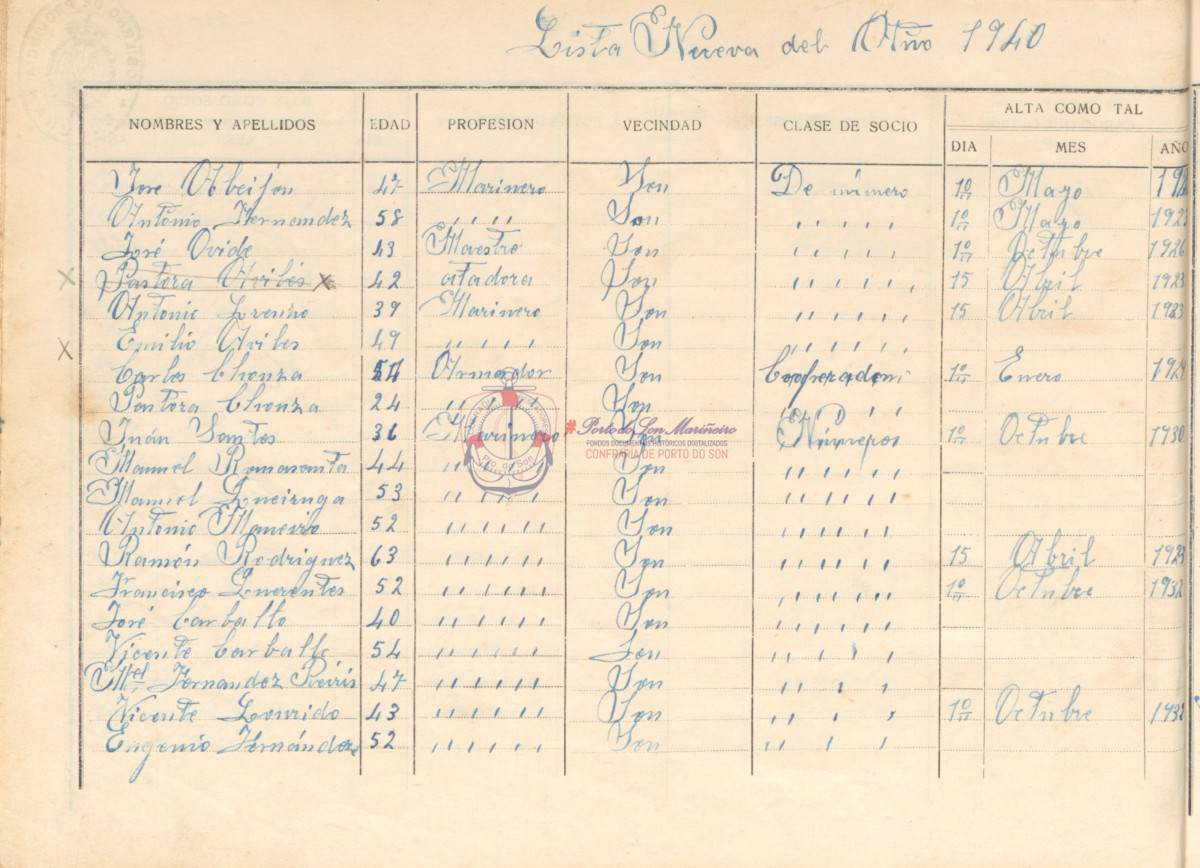 Lista Nueva del Año 1940
NOMBRES Y APELLIDOS EDAD PROFESION VECINDAD CLASE DE SOCIO ALTA COMO TAL
DIA MES AÑO
José Abeijón 47 Marinero Son De número 1º Mayo
Antonio Hernandez 58 " " " " Son " " " " " 1º Mayo 192
José Ovide 43 Maestro Son " " " " " 1º Octubre 1926
x Pastora Avilés x 42 atadora Son " " " " " " 15 Abril 1923
Antonio 39 Marinero Son " " " " " 15 Abril 1923
x Emilio Aviles 49 " " " " " Son " " " " "
Carlos Chouza Armador Son 1º Enero 192
Pastora Chouza 24 " " " " " Son " " " " "
Juán Santos 36 Marinero Son Números 1º Octubre 1930
Manuel Romaronte 44 " " " " " Son " " " " "
Manuel Queiruga 53 " " " " " Son " " " " "
Antonio Maneiro 52 " " " " " Son " " " " "
Ramón Rodriguez 63 " " " " " Son " " " " " 15 Abril 192
Francisco 52 " " " " " Son " " " " " 1º Octubre 1932
José Carballo 40 " " " " " Son " " " " "
Vicente Carballo 54 " " " " " Son " " " "
Mel Fernandez 47 " " " " " Son " " " "
Vicente Lourido 43 " " " " " Son " " " 1º Octubre 1932
Eugenio Hernández 52 " " " " " Son " " " "
#Porto do Son Mariñeiro
FONDOS DOCUMENTAIS HISTÓRICOS DIXITALIZADOS
CONFRARÍA DE PORTO DO SON